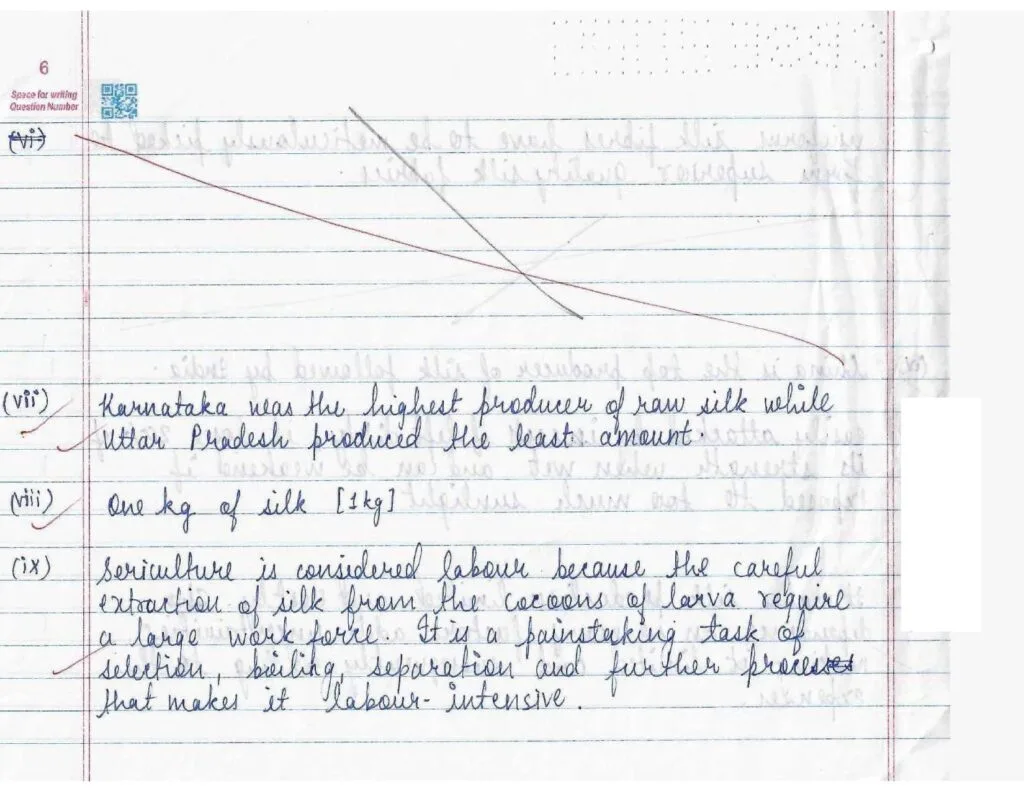 6
Space for writing
Question Number
(vi)
(vii) Karnataka was the highest producer of raw silk while
Uttar Pradesh produced the least amount.
(viii) One kg of silk [1kg]
(ix) Sericulture is considered labour because the careful
extraction of silk from the cocoons of larva require
a large work force. It is a painstaking task of
selection, boiling, separation and further processes
that makes it labour-intensive.